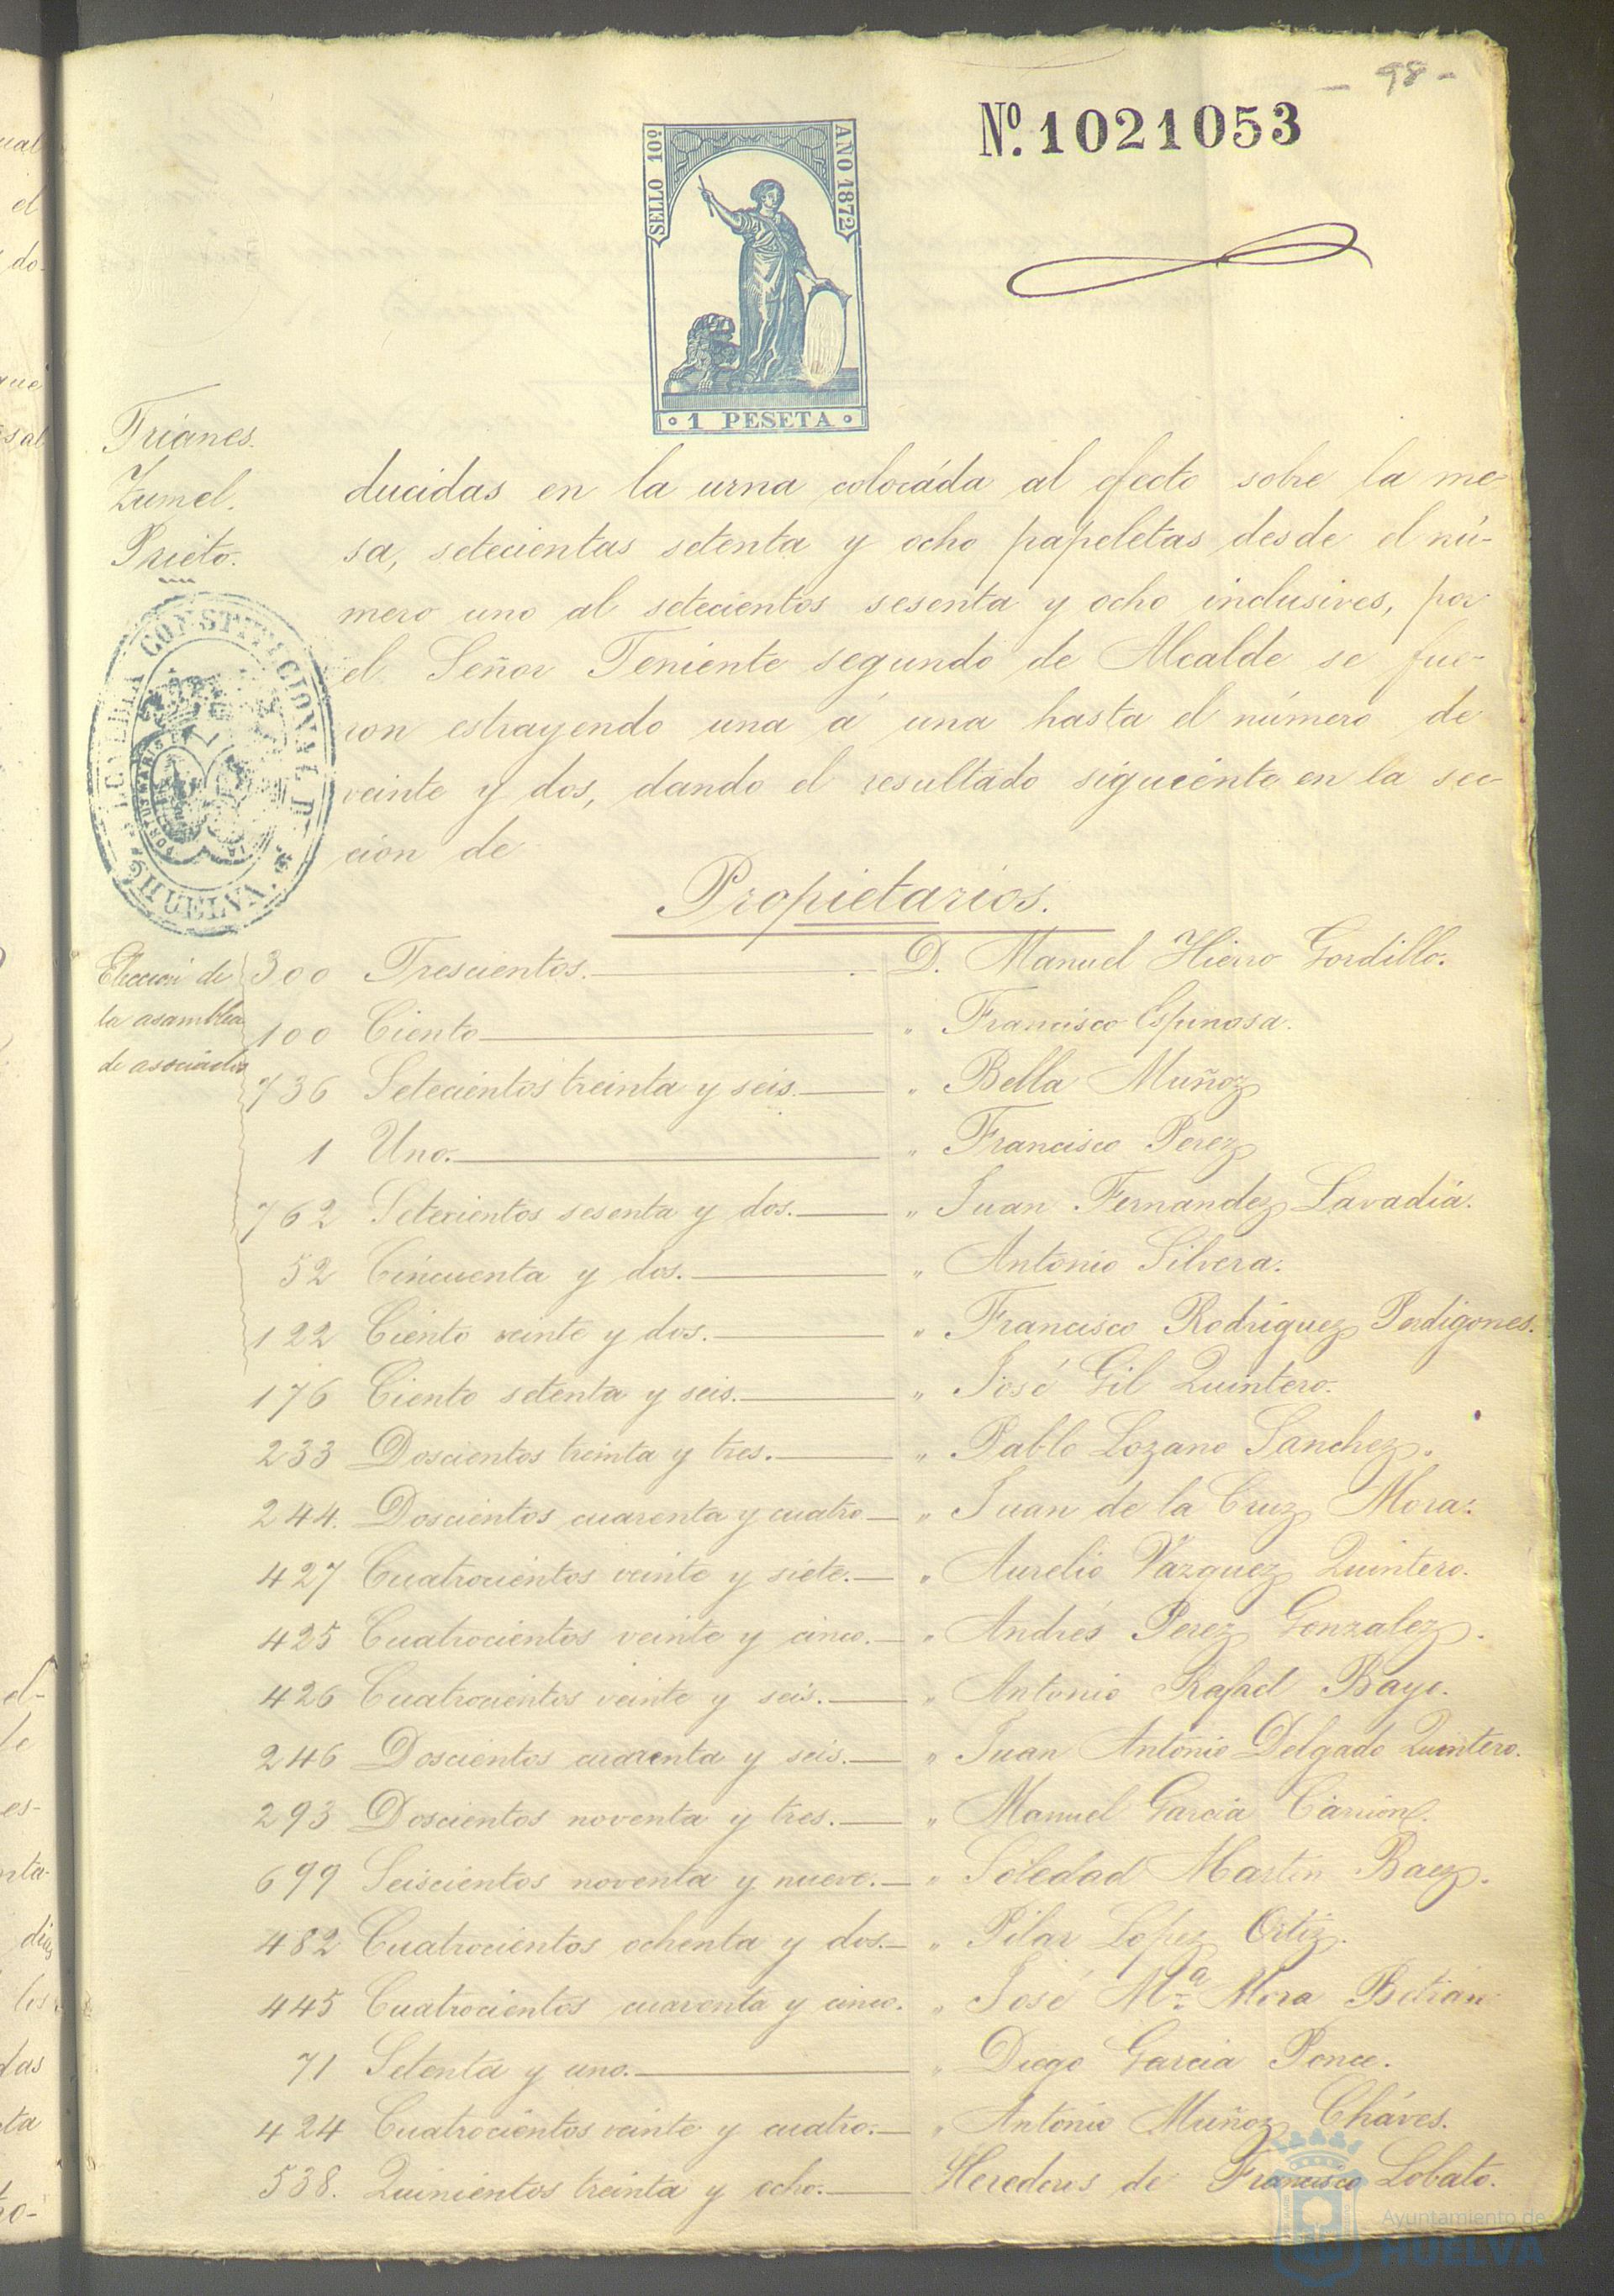 - 98 -
Nº. 1021053
SELLO 10º
AÑO 1872
1 PESETA
Trianes.
Zumel.
Prieto.
ducidas en la urna colocáda al efecto sobre la me-
sa, setecientas setenta y ocho papeletas desde el nú-
mero uno al setecientos sesenta y ocho inclusives, por
el Señor Teniente segundo de Alcalde se fue-
ron estrayendo una á una hasta el número de
veinte y dos, dando el resultado siguiente en la sec-
cion de
ALCALDIA CONSTITUCIONAL DE HUELVA
Propietarios.
Eleccion de
la asamblea
de asociados
300 Trescientos. D. Manuel Hierro Gordillo.
100 Ciento " Francisco Espinosa.
736 Setecientos treinta y seis. " Bella Muñoz
1 Uno. " Francisco Perez
762 Setecientos sesenta y dos. " Juan Fernandez Lavadia.
52 Cincuenta y dos. " Antonio Silvera.
122 Ciento veinte y dos. " Francisco Rodriguez Perdigones.
176 Ciento setenta y seis. " José Gil Quintero.
233 Doscientos treinta y tres. " Pablo Lozano Sanchez.
244. Doscientos cuarenta y cuatro " Juan de la Cruz Mora.
427 Cuatrocientos veinte y siete. " Aurelio Vazquez Quintero.
425 Cuatrocientos veinte y cinco. " Andrés Perez Gonzalez.
426 Cuatrocientos veinte y seis. " Antonio Rafael Bayo.
246 Doscientos cuarenta y seis. " Juan Antonio Delgado Quintero.
293 Doscientos noventa y tres. " Manuel Garcia Carrion.
699 Seiscientos noventa y nueve. " Soledad Martin Baez.
482 Cuatrocientos ochenta y dos. " Pilar Lopez Ortiz.
445 Cuatrocientos cuarenta y cinco. " José Mª Mora Betrian
71 Setenta y uno. " Diego Garcia Ponce.
424 Cuatrocientos veinte y cuatro. " Antonio Muñoz Cháves.
538. Quinientos treinta y ocho. Herederos de Francisco Lobato.
Ayuntamiento de
HUELVA